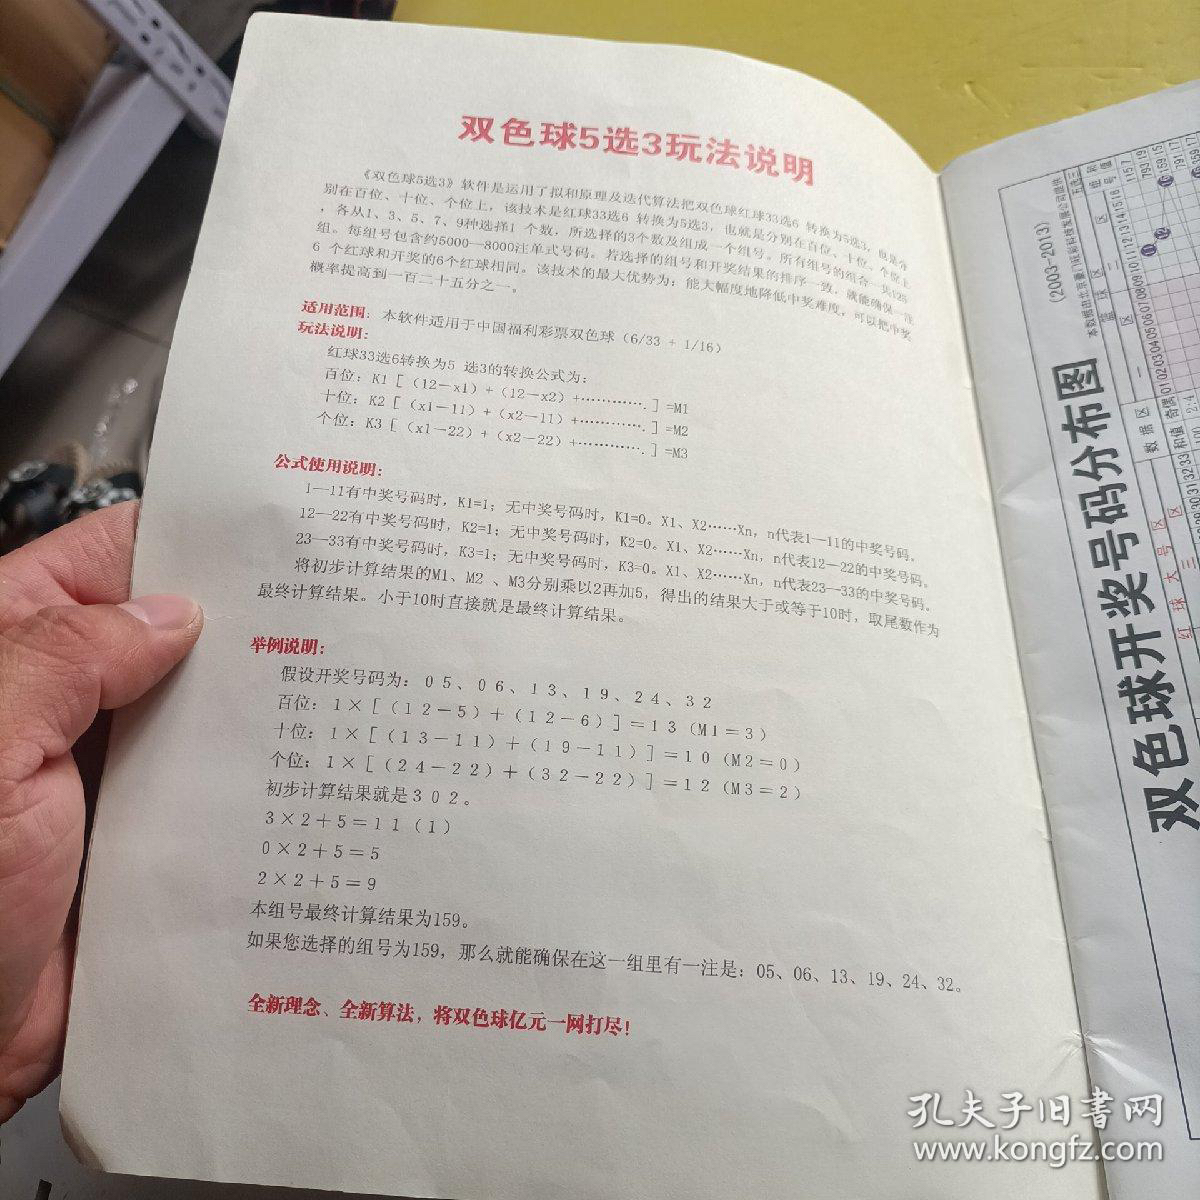 双色球5选3玩法说明
《双色球5选3》软件是运用了拟和原理及迭代算法把双色球红球33选6 转换为5选3，也是分
别在百位、十位、个位上，该技术是红球33选6 转换为5选3，也就是分别在百位、十位、个位上
，各从1、3、5、7、9种选择1 个数，所选择的3个数及组成一个组号。所有组号的组合一共125
组。每组号包含约5000—8000注单式号码。若选择的组号和开奖结果的排序一致，就能确保一注
6 个红球和开奖的6个红球相同。该技术的最大优势为：能大幅度地降低中奖难度，可以把中奖
概率提高到一百二十五分之一。
适用范围：本软件适用于中国福利彩票双色球（6/33 + 1/16）
玩法说明：
红球33选6转换为5 选3的转换公式为：
百位：K1［（12－x1）+（12－x2）+…………．］=M1
十位：K2［（x1－11）+（x2－11）+…………．］=M2
个位：K3［（x1－22）+（x2－22）+…………．］=M3
公式使用说明：
1—11有中奖号码时，K1=1；无中奖号码时，K1=0。X1、X2……Xn，n代表1—11的中奖号码．
12—22有中奖号码时，K2=1；无中奖号码时，K2=0。X1、X2……Xn，n代表12—22的中奖号码。
23—33有中奖号码时，K3=1；无中奖号码时，K3=0。X1、X2……Xn，n代表23—33的中奖号码．
将初步计算结果的M1、M2 、M3分别乘以2再加5，得出的结果大于或等于10时，取尾数作为
最终计算结果。小于10时直接就是最终计算结果。
举例说明：
假设开奖号码为：05、06、13、19、24、32
百位：1×［（12－5）＋（12－6）］＝13（M1＝3）
十位：1×［（13－11）＋（19－11）］＝10（M2＝0）
个位：1×［（24－22）＋（32－22）］＝12（M3＝2）
初步计算结果就是302。
3×2＋5＝11（1）
0×2＋5＝5
2×2＋5＝9
本组号最终计算结果为159。
如果您选择的组号为159，那么就能确保在这一组里有一注是：05、06、13、19、24、32。
全新理念、全新算法，将双色球亿元一网打尽！
双色球开奖号码分布图
（2003-2013）
孔夫子旧书网
www.kongfz.com